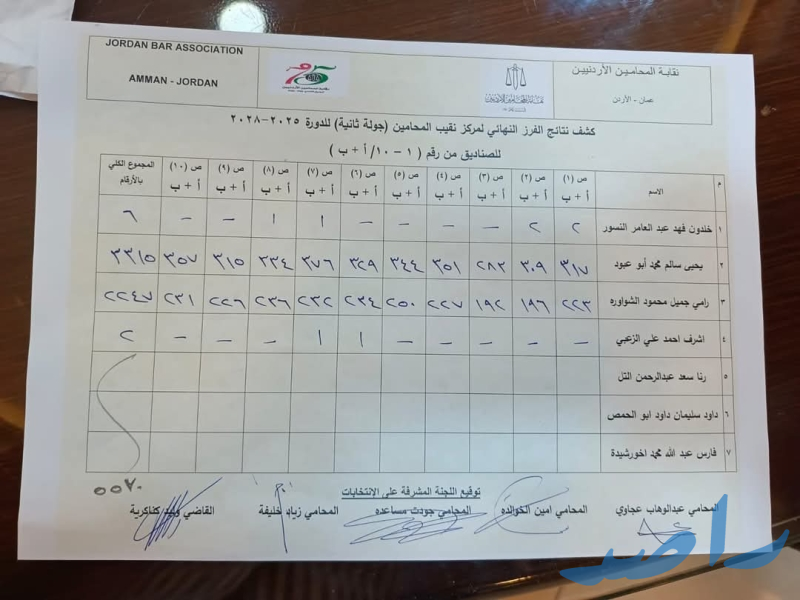 JORDAN BAR ASSOCIATION
AMMAN - JORDAN
نقابة المحامين الأردنيين
عمان - الأردن
كشف نتائج الفرز النهائي لمركز نقيب المحامين (جولة ثانية) للدورة ٢٠٢٥-٢٠٢٨
للصناديق من رقم (١ - ١٠/ أ + ب )
م الاسم ص (١) أ + ب ص (٢) أ + ب ص (٣) أ + ب ص (٤) أ + ب ص (٥) أ + ب ص (٦) أ + ب ص (٧) أ + ب ص (٨) أ + ب ص (٩) أ + ب ص (١٠) أ + ب المجموع الكلي بالأرقام
١ خلدون فهد عبد العامر النسور ٢ ٢ - - - - ١ ١ - - ٦
٢ يحيى سالم محمد أبو عبود ٣١٧ ٣٠٩ ٢٨٣ ٣٥١ ٣٤٤ ٣٢٩ ٣٧٦ ٣٣٤ ٣١٥ ٣٥٧ ٣٣١٥
٣ رامي جميل محمود الشواوره ٢٢٣ ١٩٦ ١٩٢ ٢٢٧ ٢٥٠ ٢٣٤ ٢٣٢ ٢٣٦ ٢٢٦ ٢٣١ ٢٢٤٧
٤ اشرف احمد علي الزعبي - - - - - ١ ١ - - - ٢
٥ رنا سعد عبدالرحمن التل
٦ داود سليمان داود ابو الحمص
٧ فارس عبد الله محمد اخورشيدة
٥٥٧٠
توقيع اللجنة المشرفة على الانتخابات
المحامي عبدالوهاب عجاوي المحامي امين الخوالده المحامي جودت مساعده المحامي زياد خليفة القاضي وليد كناكرية
راصد